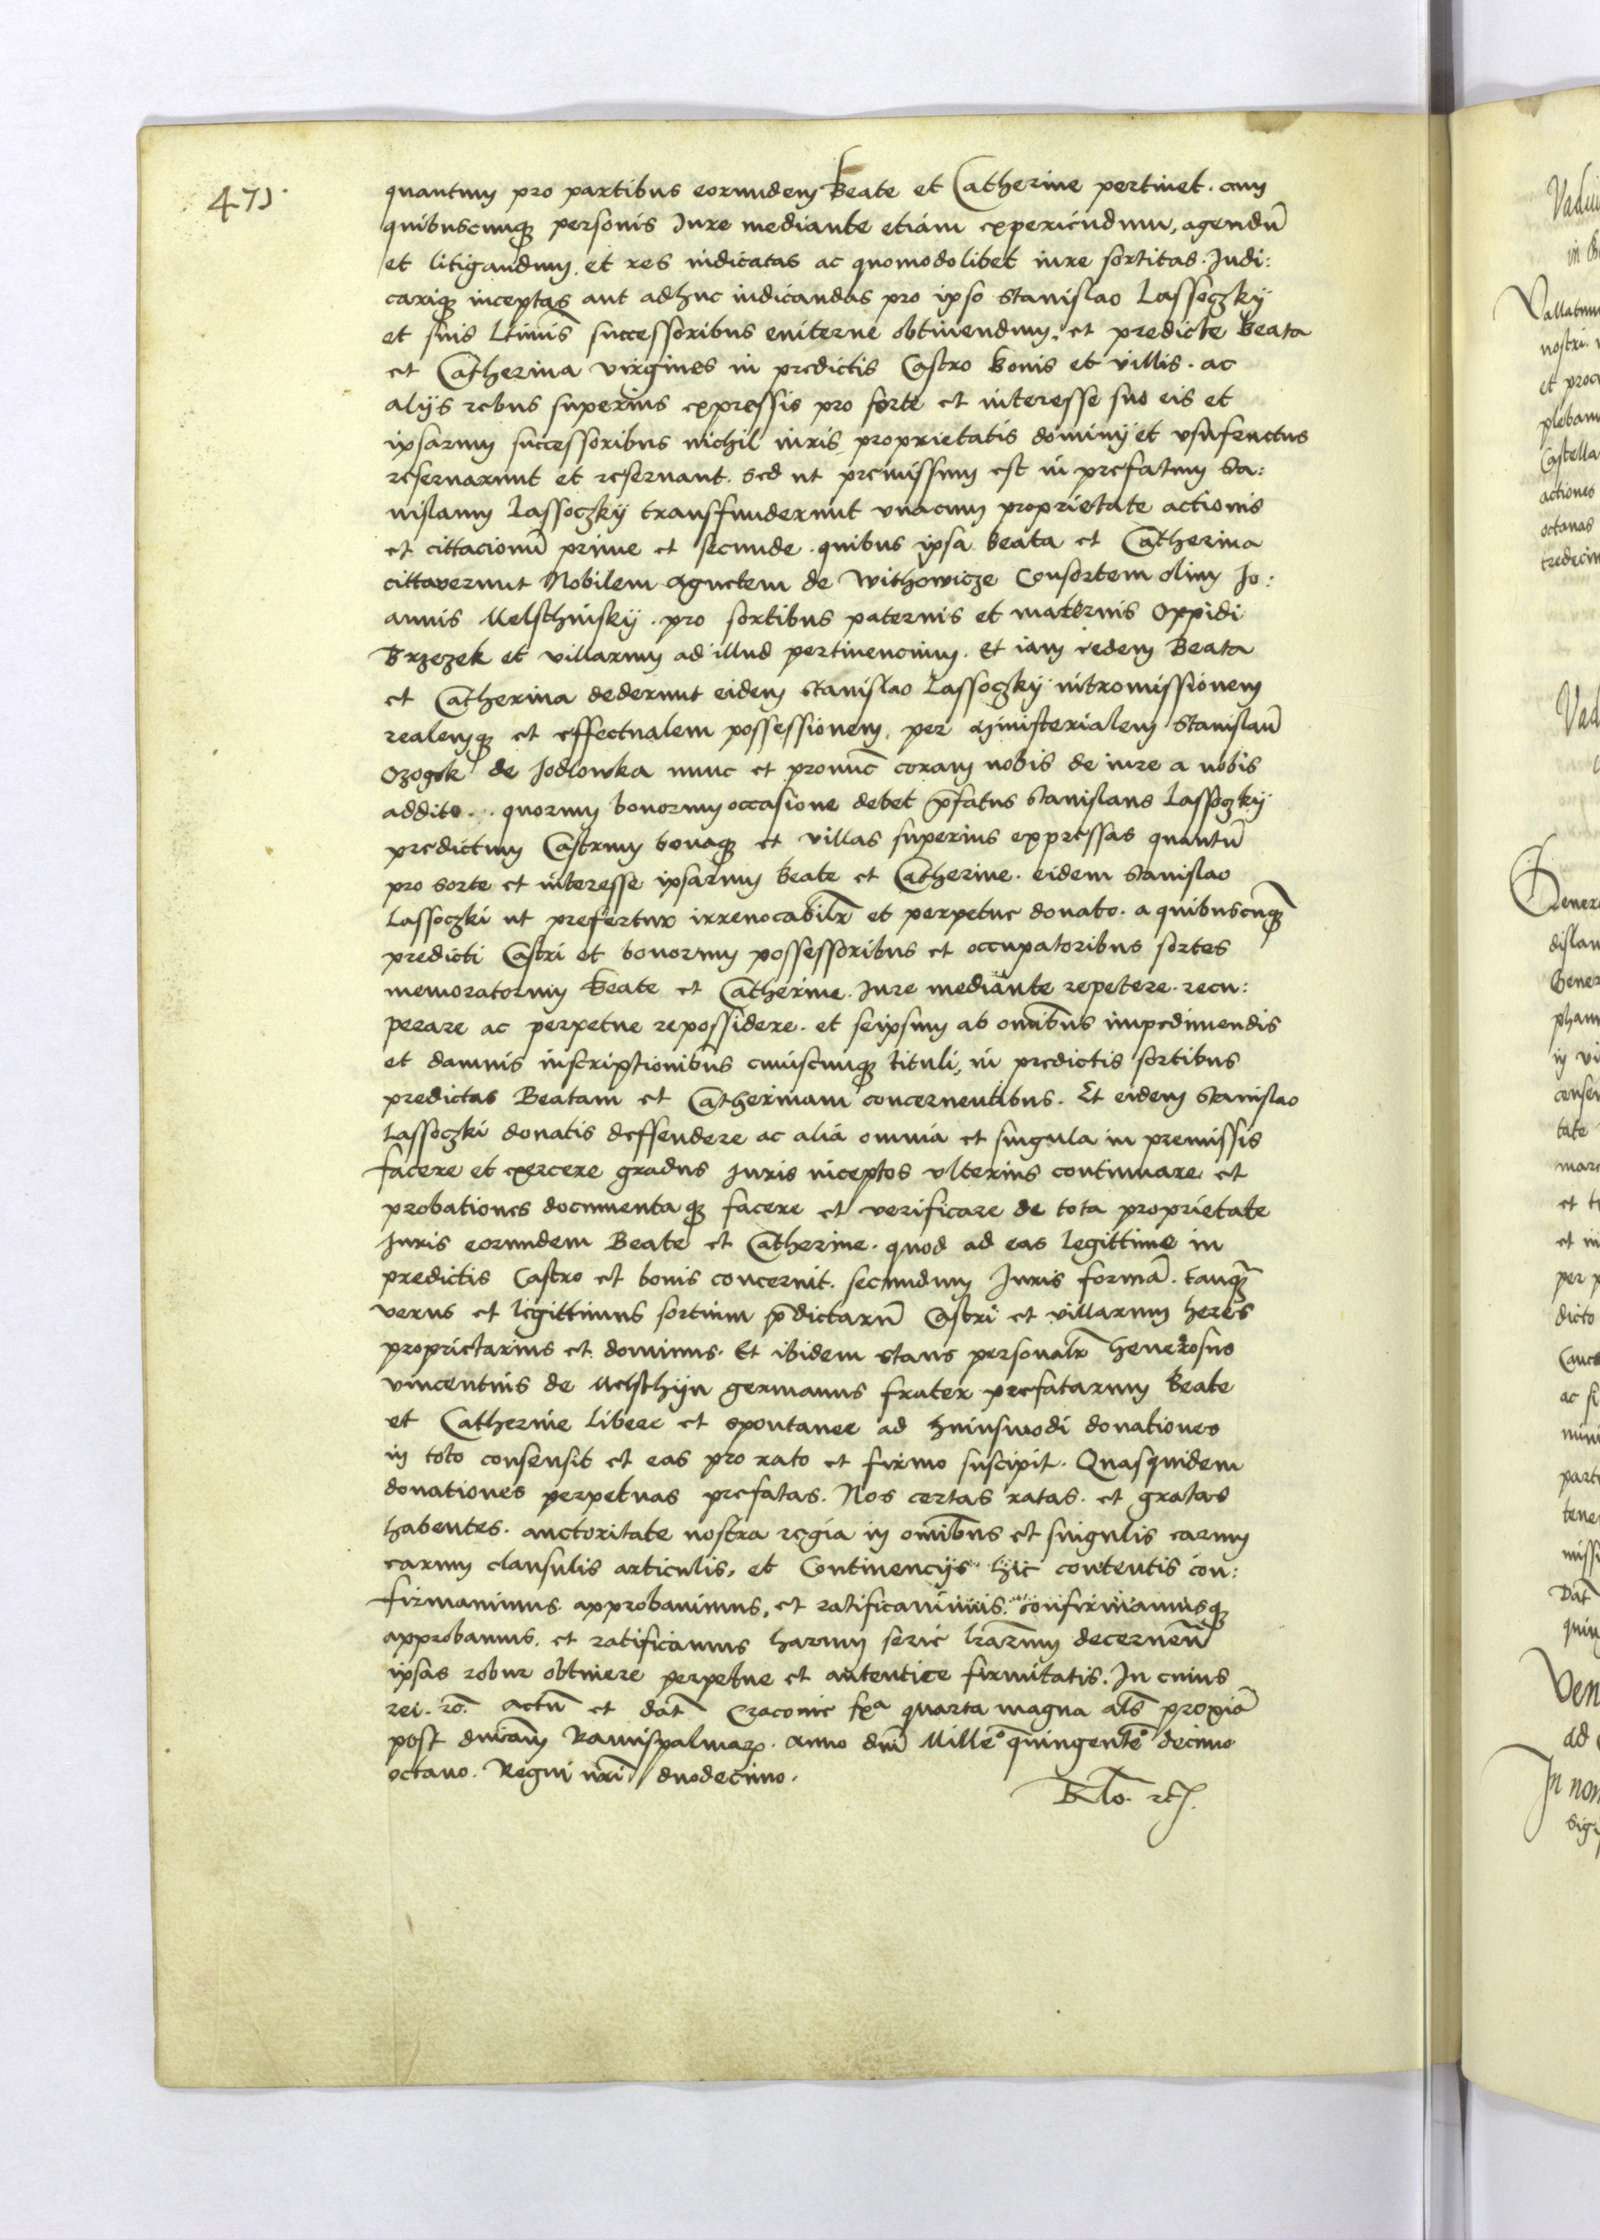 471.
quantum pro partibus eorundem Beate et Catherine pertinet. cum
quibuscunq personis Iure mediante etiam experiendum, agendū
et litigandum. et res iudicatas ac quomodolibet iure sortitas. Iudi:
cariq inceptas aut adhuc iudicandas pro ipso Stanislao Lassoczky
et suis Ltimis successoribus eviterne obtinendum. et predicte Beata
et Catherina virgines in predictis Castro bonis et villis. ac
alijs rebus superius expressis pro sorte et interesse suo eis et
ipsarum successoribus nichil iuris proprietatis dominij et vsufructus
reseruarunt et reseruant. sed ut premissum est in prefatum Sta:
nislaum Lassoczky transfuderunt vnacum proprietate actionis
et cittacionū prime et secunde. quibus ipsa Beata et Catherina
cittaverunt Nobilem Agnetem de Withowicze Consortem olim Jo:
annis Melsthinsky. pro sortibus paternis et maternis Oppidi
Brzezek et villarum ad illud pertinencium. Et iam eedem Beata
et Catherina dederunt eidem Stanislao Lassoczky intromissionem
realemq et effectualem possessionem. per Ministerialem Stanislaū
Ozogek de Jodlowka nunc et pronūc coram nobis de iure a nobis
addito. quorum bonorum occasione debet p̄fatus Stanislaus Lassoczky
predictum Castrum bonaq et villas superius expressas quantū
pro sorte et interesse ipsarum Beate et Catherine. eidem Stanislao
Lassoczki ut prefertur irreuocabilr̄ et perpetue donato. a quibuscūq
predicti Castri et bonorum possessoribus et occupatoribus sortes
memoratorum Beate et Catherine. Iure mediante repetere. recu:
perare ac perpetue repossidere. et seipsum ab omībus impedimendis
et damnis inscriptionibus cuiuscunq tituli, in predictis sortibus
predictas Beatam et Catherinam concernentibus. Et eidem Stanislao
Lassoczki donatis deffendere ac alia omnia et singula in premissis
facere et exercere gradus Iuris inceptos vlterius continuare et
probationes documentaq facere et verificare de tota proprietate
Iuris eorundem Beate et Catherine. quod ad eas legittime in
predictis Castro et bonis concernit. secundum Iuris formā. tanq̄
verus et legittimus sortium p̄dictarū Castri et villarum heres
proprietarius et dominus. Et ibidem stans personalr̄ Generosus
vincentius de Melsthijn germanus frater prefatarum Beate
et Catherine libere et spontanee ad huiusmodi donationes
in toto consensit et eas pro rato et firmo suscipit. Quasquidem
donationes perpetuas prefatas. Nos certas ratas. et gratas
habentes. auctoritate nostra regia in omībus et singulis earum
earum clausulis articulis, et Continencijs hic contentis con:
firmauimus approbauimus, et ratificauimus. confirmamusq
approbamus. et ratificamus harum serie lr̄arum decernen̄
ipsas robur obtinere perpetue et autentice firmitatis. In cuius
rei. ro. Actū et dat̄ Cracouie fxa quarta magna als̄ proxiā
post dn̄icam Ramispalmarꝝ. Anno dn̄i Milleo quingenteo decimo
octauo. Regni nr̄i duodecimo.